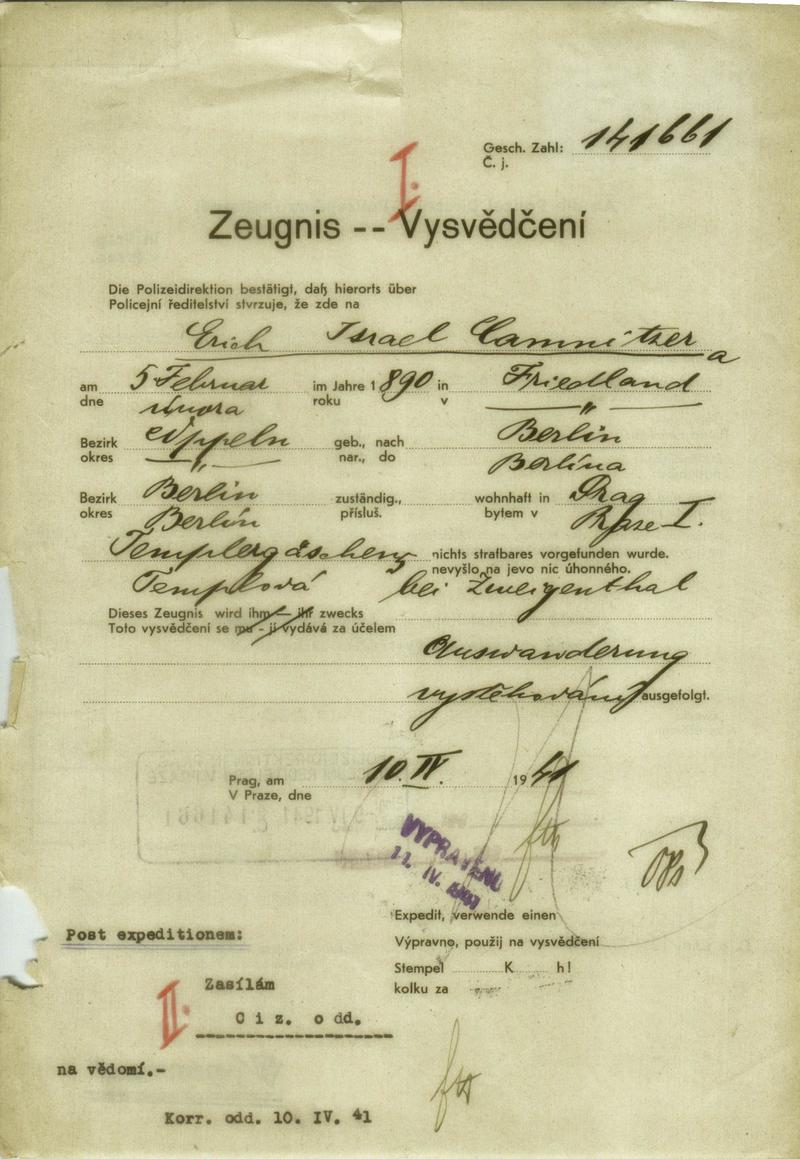 Gesch. Zahl: 141661
Č. j.
I.
Zeugnis -- Vysvědčení
Die Polizeidirektion bestätigt, daß hierorts über
Policejní ředitelství stvrzuje, že zde na
Erich Israel Camnitzer
a
am 5 Februar im Jahre 1890 in Friedland
dne února roku v — " —
Bezirk Oppeln geb., nach Berlin
okres — " — nar., do Berlína
Bezirk Berlin zuständig., wohnhaft in Prag
okres Berlín přísluš. bytem v Praze I.
Templergässchen 3 nichts strafbares vorgefunden wurde.
nevyšlo na jevo nic úhonného.
Templová bei Zweigenthal
Dieses Zeugnis wird ihm — ihr zwecks
Toto vysvědčení se mu - jí vydává za účelem
Auswanderung
vystěhování ausgefolgt.
Prag, am 10. IV. 1941
V Praze, dne
VYPRAVENO
11. IV. 1941
Expedit, verwende einen
Výpravno, použij na vysvědčení
Stempel K h!
kolku za
Post expeditionem:
Zasílám
II.
Ciz. odd.
na vědomí.-
Korr. odd. 10. IV. 41